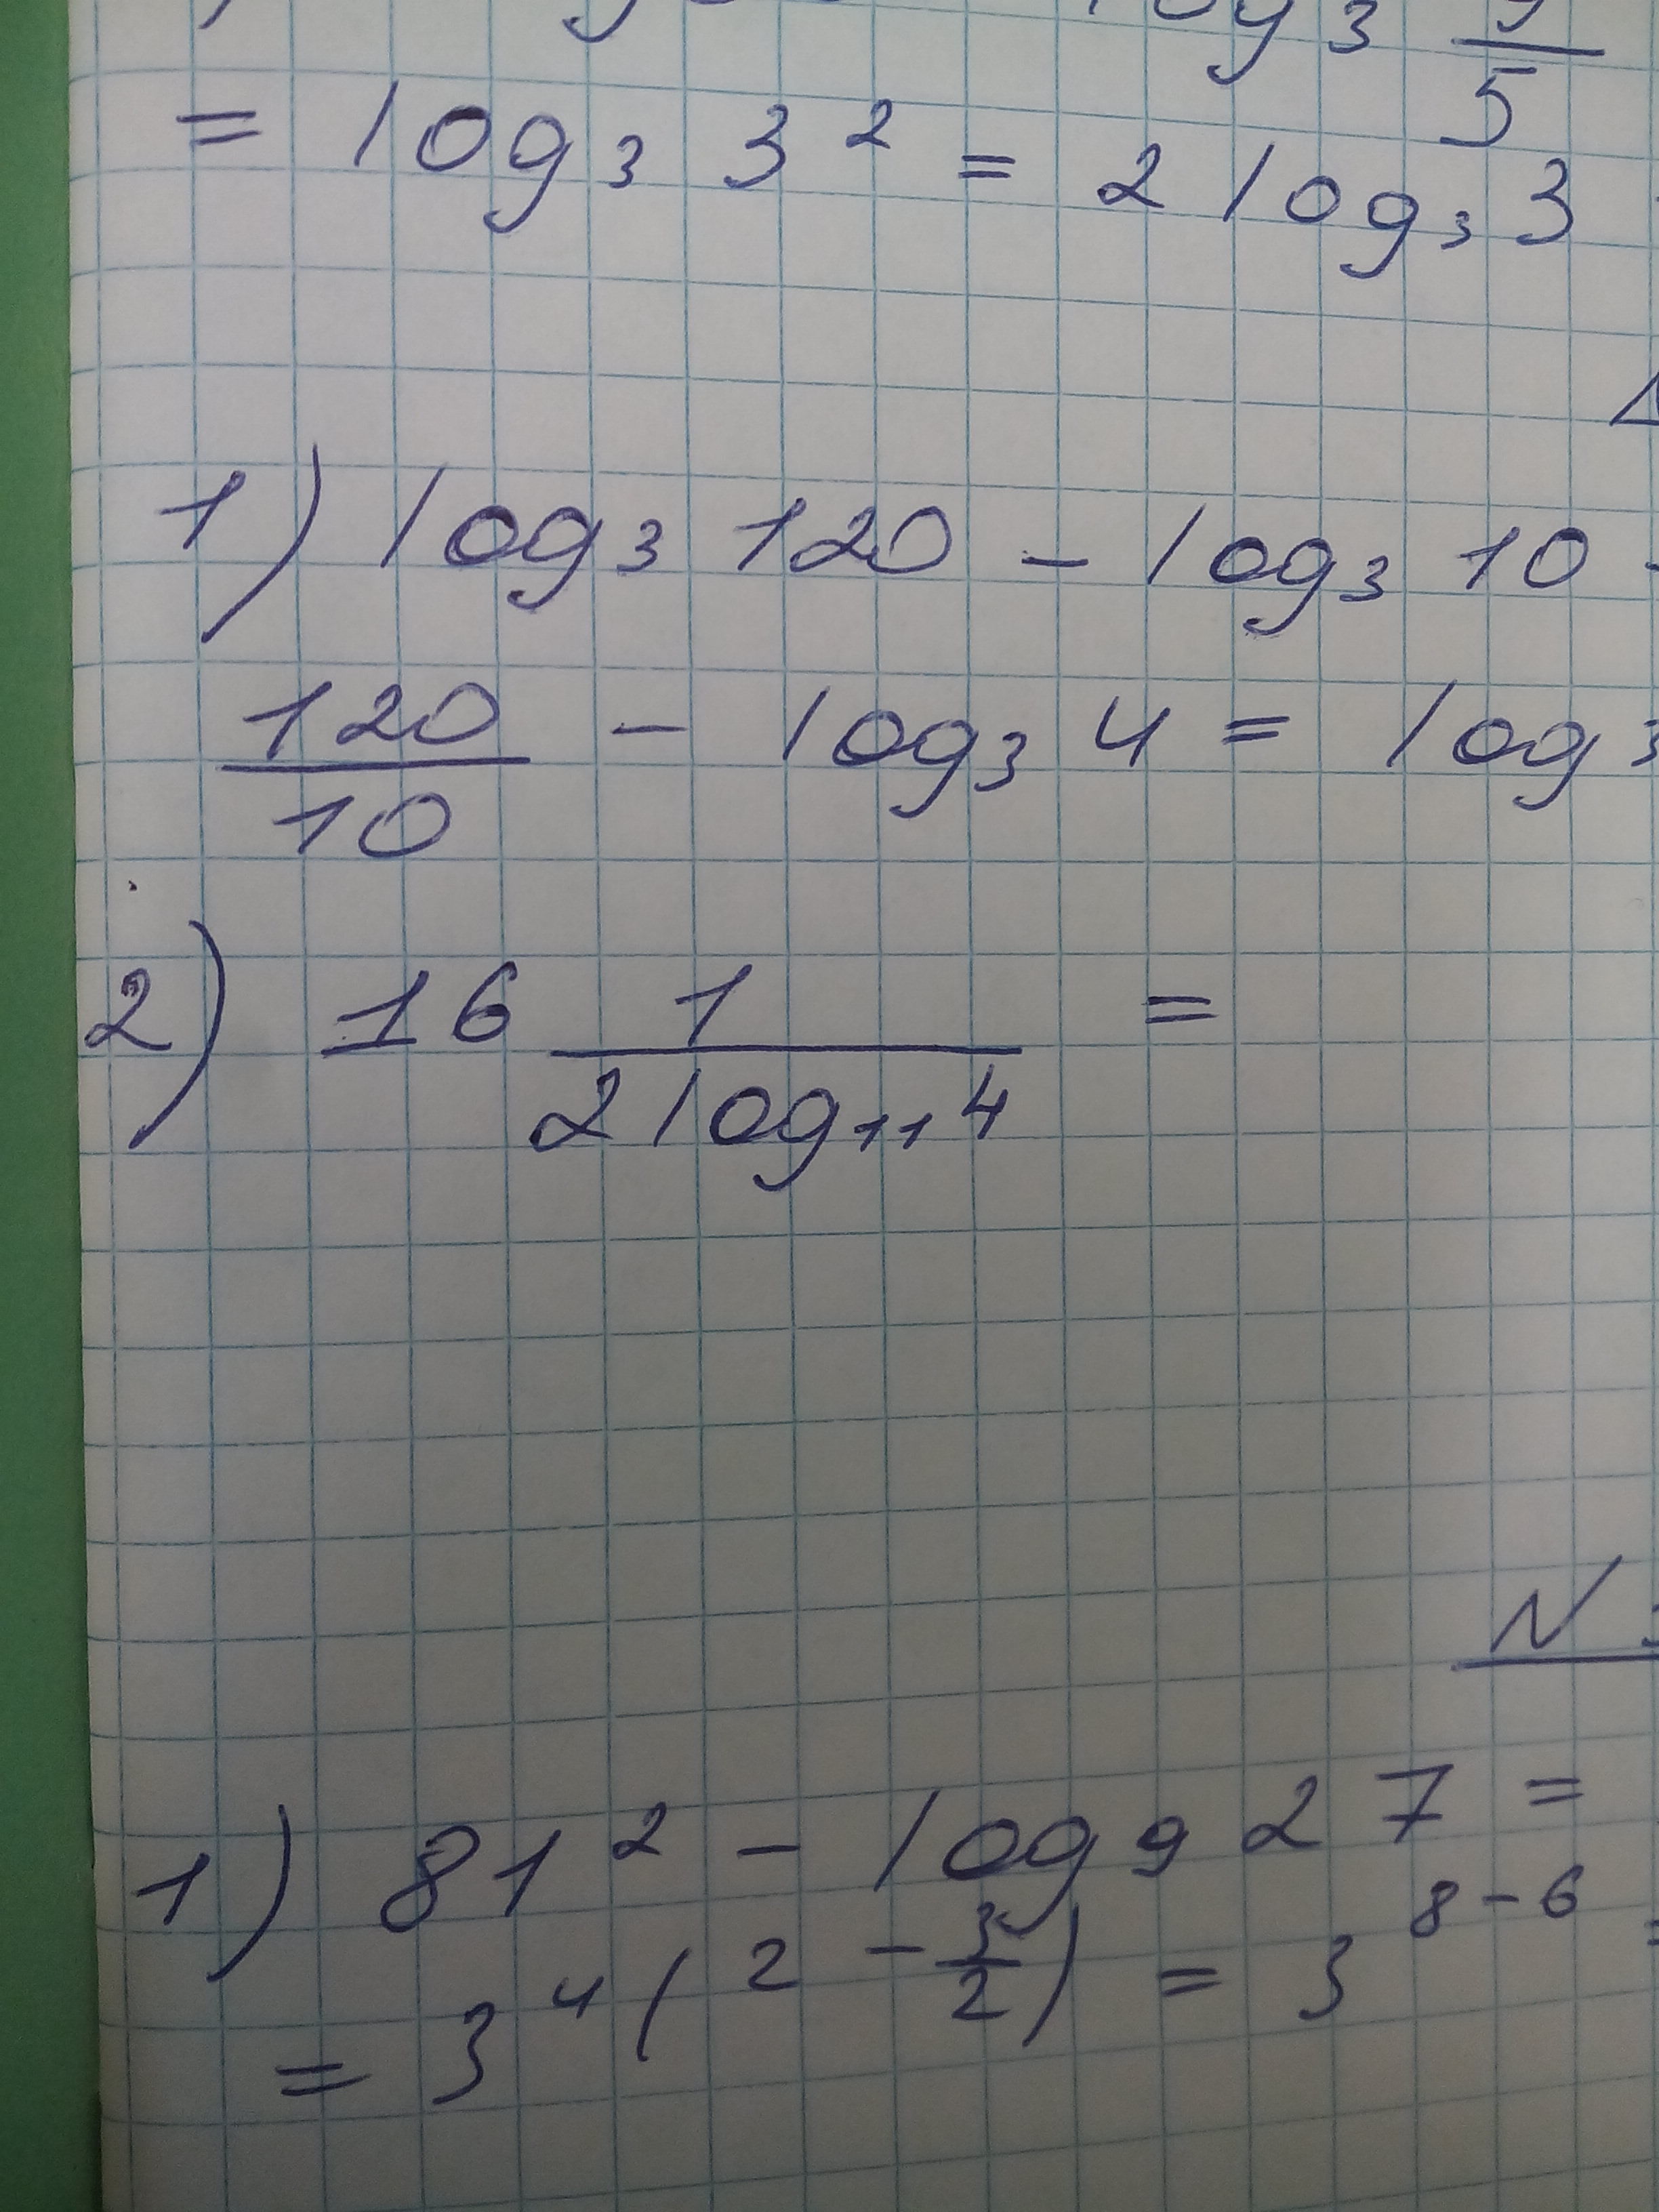 log 3 9/5
= log 3 3 ² = 2 log 3 3
1) log 3 120 - log 3 10 -
120/10 - log 3 4 = log 3
2) 16 1/(2 log 11 4) =
N
1) 81 ² - log 9 27 =
= 3 ⁴ ( 2 - 3/2 ) = 3 ⁸⁻⁶ =